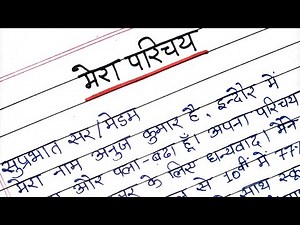 मेरा परिचय
सुप्रभात सर/मेडम
मेरा नाम अनुज कुमार है, इन्दौर में
और पला-बढ़ा हूँ। अपना परिचय
के लिए धन्यवाद। मैंने
से 10वीं में 77
साथ